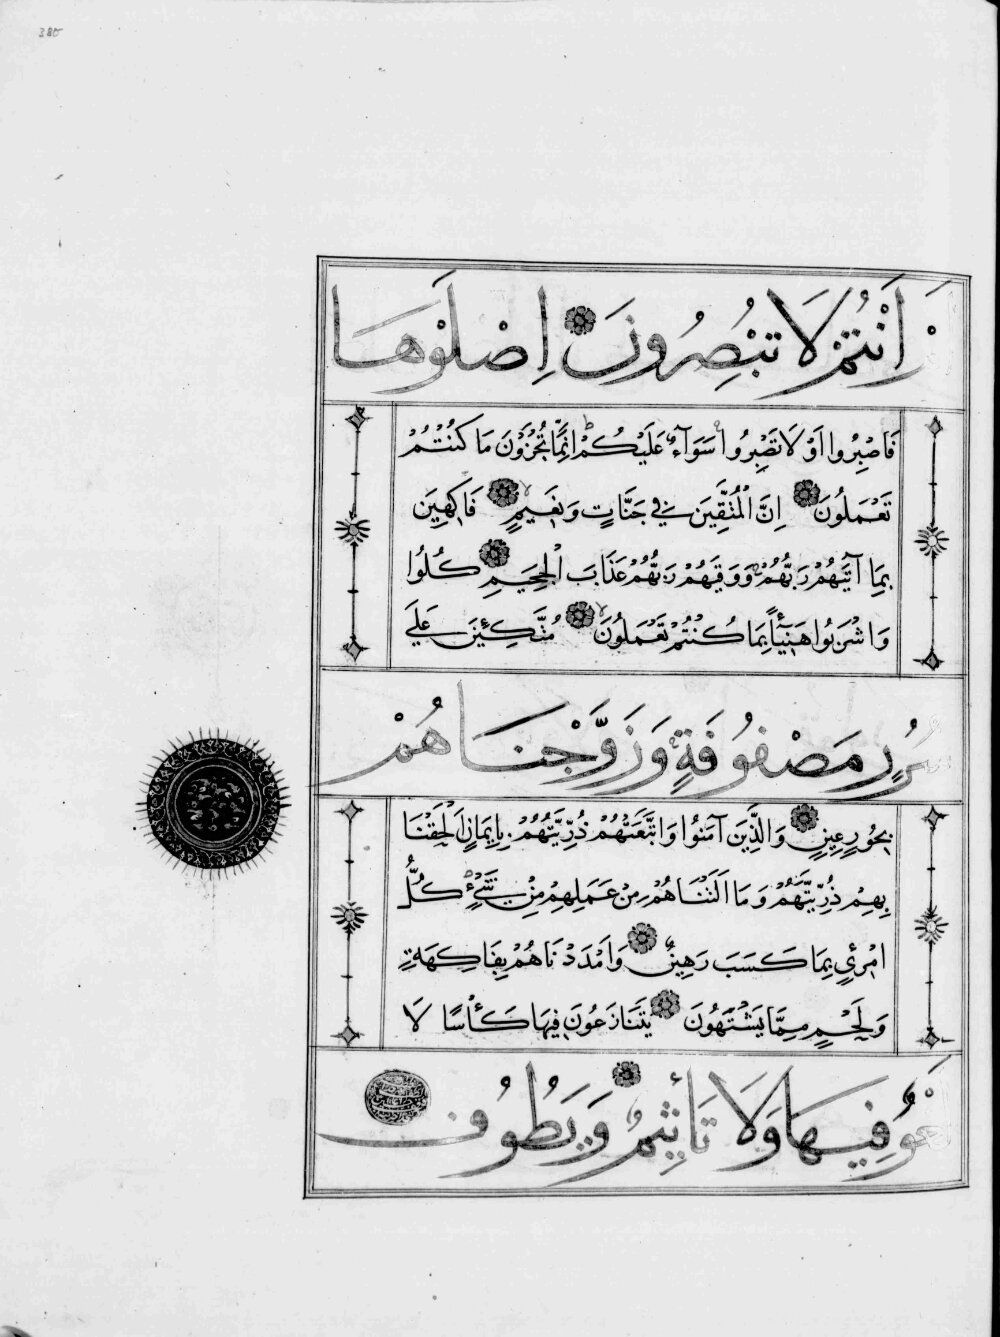 385
أَنْتُمْ لَا تُبْصِرُونَ اِصْلَوْهَا
فَاصْبِرُوا اَوْ لَا تَصْبِرُوا سَوَآءٌ عَلَيْكُمْ اِنَّمَا تُجْزَوْنَ مَا كُنْتُمْ
تَعْمَلُونَ اِنَّ الْمُتَّقِينَ فِي جَنَّاتٍ وَنَعِيمٍ فَاكِهِينَ
بِمَا آتَيٰهُمْ رَبُّهُمْ وَوَقٰيهُمْ رَبُّهُمْ عَذَابَ الْجَحِيمِ كُلُوا
وَاشْرَبُوا هَنِيٓئًا بِمَا كُنْتُمْ تَعْمَلُونَ مُتَّكِئِينَ عَلَى
سُرُرٍ مَصْفُوفَةٍ وَزَوَّجْنَاهُمْ
بِحُورٍ عِينٍ وَالَّذِينَ آمَنُوا وَاتَّبَعَتْهُمْ ذُرِّيَّتُهُمْ بِاِيمَانٍ اَلْحَقْنَا
بِهِمْ ذُرِّيَّتَهُمْ وَمَا اَلَتْنَاهُمْ مِنْ عَمَلِهِمْ مِنْ شَيْءٍ كُلُّ
امْرِئٍ بِمَا كَسَبَ رَهِينٌ وَاَمْدَدْنَاهُمْ بِفَاكِهَةٍ
وَلَحْمٍ مِمَّا يَشْتَهُونَ يَتَنَازَعُونَ فِيهَا كَأْسًا لَا
لَغْوٌ فِيهَا وَلَا تَأْثِيمٌ وَيَطُوفُ